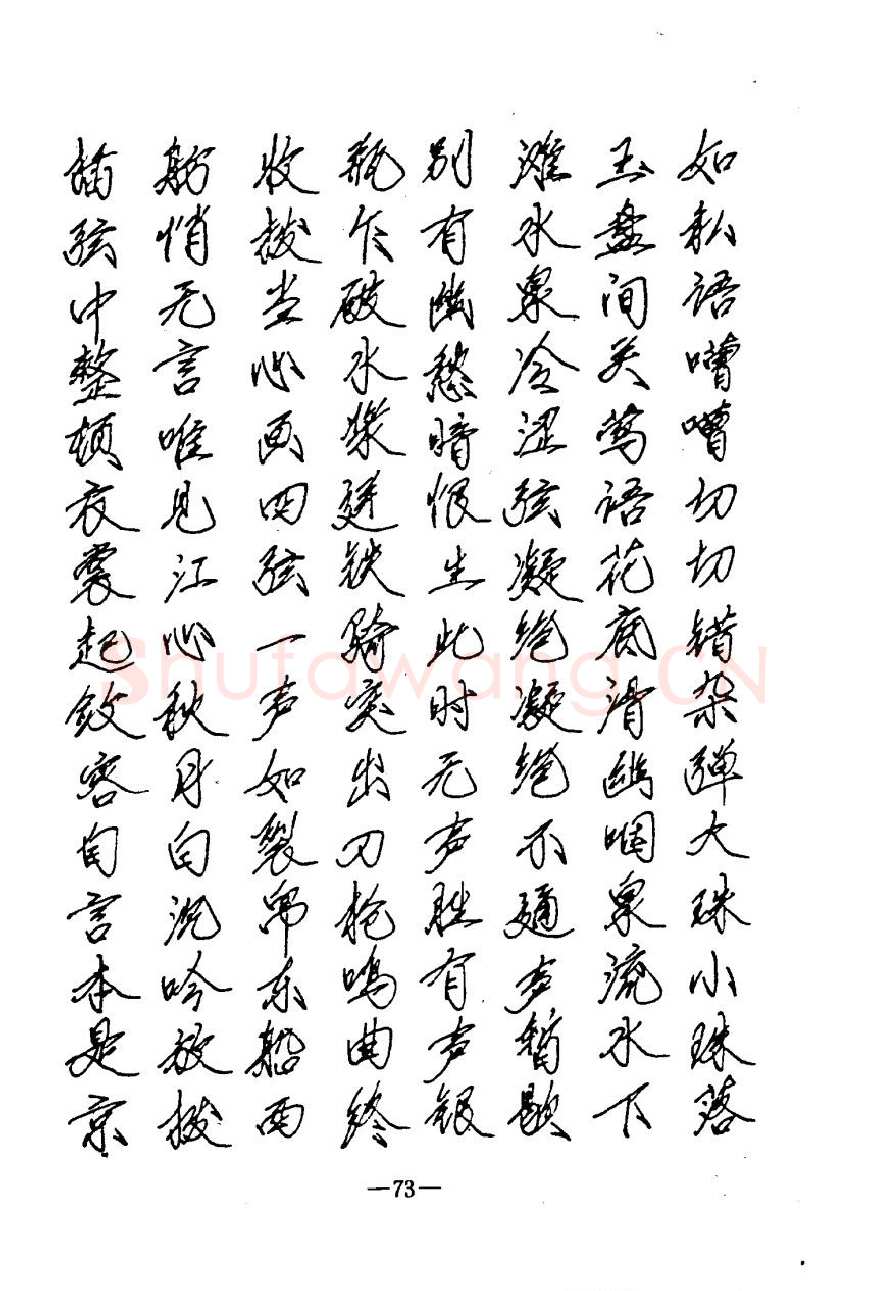 如私语嘈嘈切切错杂弹大珠小珠落
玉盘间关莺语花底滑幽咽泉流水下
滩水泉冷涩弦凝绝凝绝不通声暂歇
别有幽愁暗恨生此时无声胜有声银
瓶乍破水浆迸铁骑突出刀枪鸣曲终
收拨当心画四弦一声如裂帛东船西
舫悄无言唯见江心秋月白沉吟放拨
插弦中整顿衣裳起敛容自言本是京
—73—
Shufawang.CN